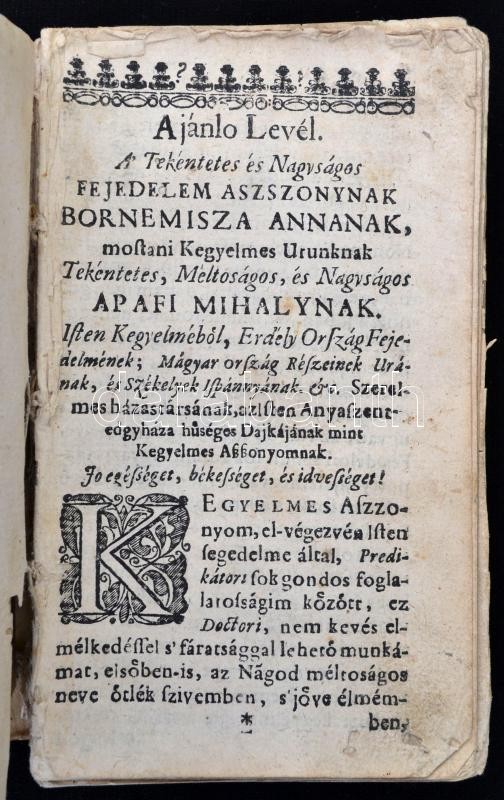 Ajánlo Levél.
A' Tekéntetes és Nagyságos
FEJEDELEM ASZSZONYNAK
BORNEMISZA ANNANAK,
moſtani Kegyelmes Urunknak
Tekéntetes, Méltoságos, és Nagyságos
APAFI MIHALYNAK.
Iſten Kegyelméből, Erdély Orſzág Feje-
delmének; Mágyar orſzág Réſzeinek Urá-
nak, és Székelyek Iſpánnyának. &c. Szerel-
mes házastársának, az Iſten Anyaſzent-
egyháza hűséges Dajkájának mint
Kegyelmes Aſſonyomnak.
Jo egéſséget, békeſséget, és idveſséget!
KEGYELMES Aſzzo-
nyom, el-végezvén Iſten
ſegedelme által, Predi-
kátori ſok gondos fogla-
latoſságim között, ez
Doctori, nem kevés el-
mélkedéſſel s' fáratsággal lehető munká-
mat, elsőben-is, az Nagod méltoságos
neve ötlék ſzivemben, s' jőve élmém-
* ben,